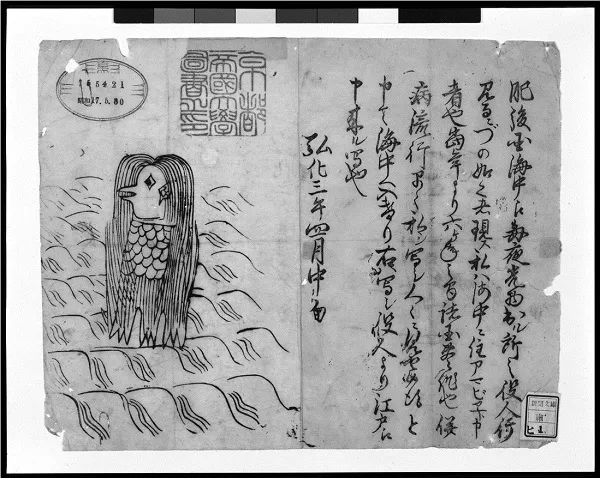 肥後国海中江毎夜光物出ル所之役人行
見るニづの如之者現ス私ハ海中ニ住アマビヱト申
者也當年より六ヶ年之間諸国豊作也併
病流行早々私ヲ写シ人々ニ見セ候得と
申て海中へ入けり右写シ役人より江戸江
申来ル写也
弘化三年四月中旬
京都
帝國大學
圖書之印
165421
昭和17.5.30
新聞文庫
ヒ 1